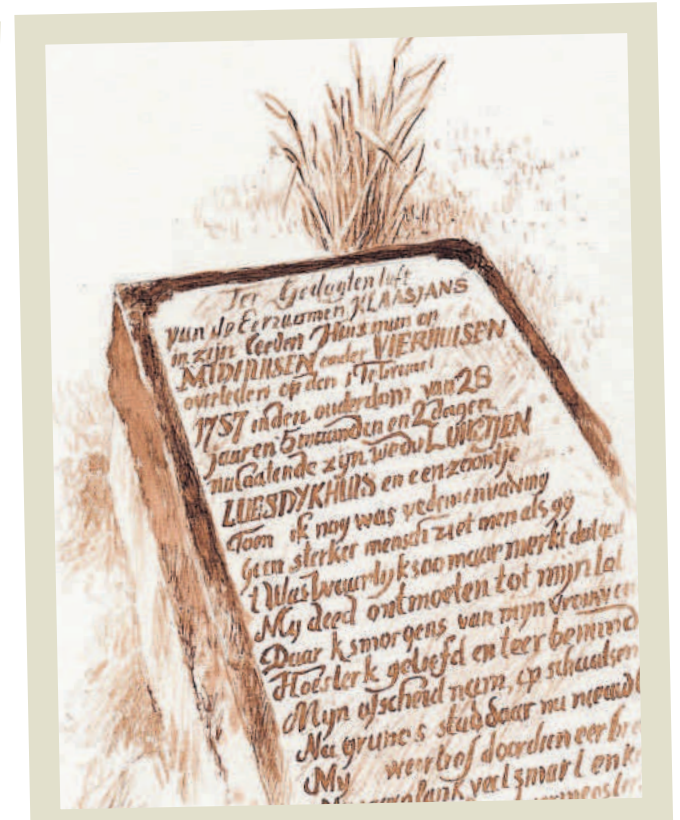 Ter Gedagten
van de Eerzaamen KLAASJANS
in zijn Leeven Huisman op
MIDHUISEN onder VIERHUISEN
overleden op den 1 Februari
1757 in den ouderdom van 28
jaaren 5 maanden en 2 dagen
nalaatende zijn wedu LUIGTJEN
LUESDYKHUIS en een zoontje
Toen ik nog was
geen sterker mensch ziet men als gy
t Was maar merkt dat
My deed ontmoeten tot myn lot
Daar k smorgens van myn Vrouw en
Hoe sterk geloefd en teer bemind
Myn afscheid nam, op schaatsen
Na grunes stad daar na
My weertrof door den
veel smart en